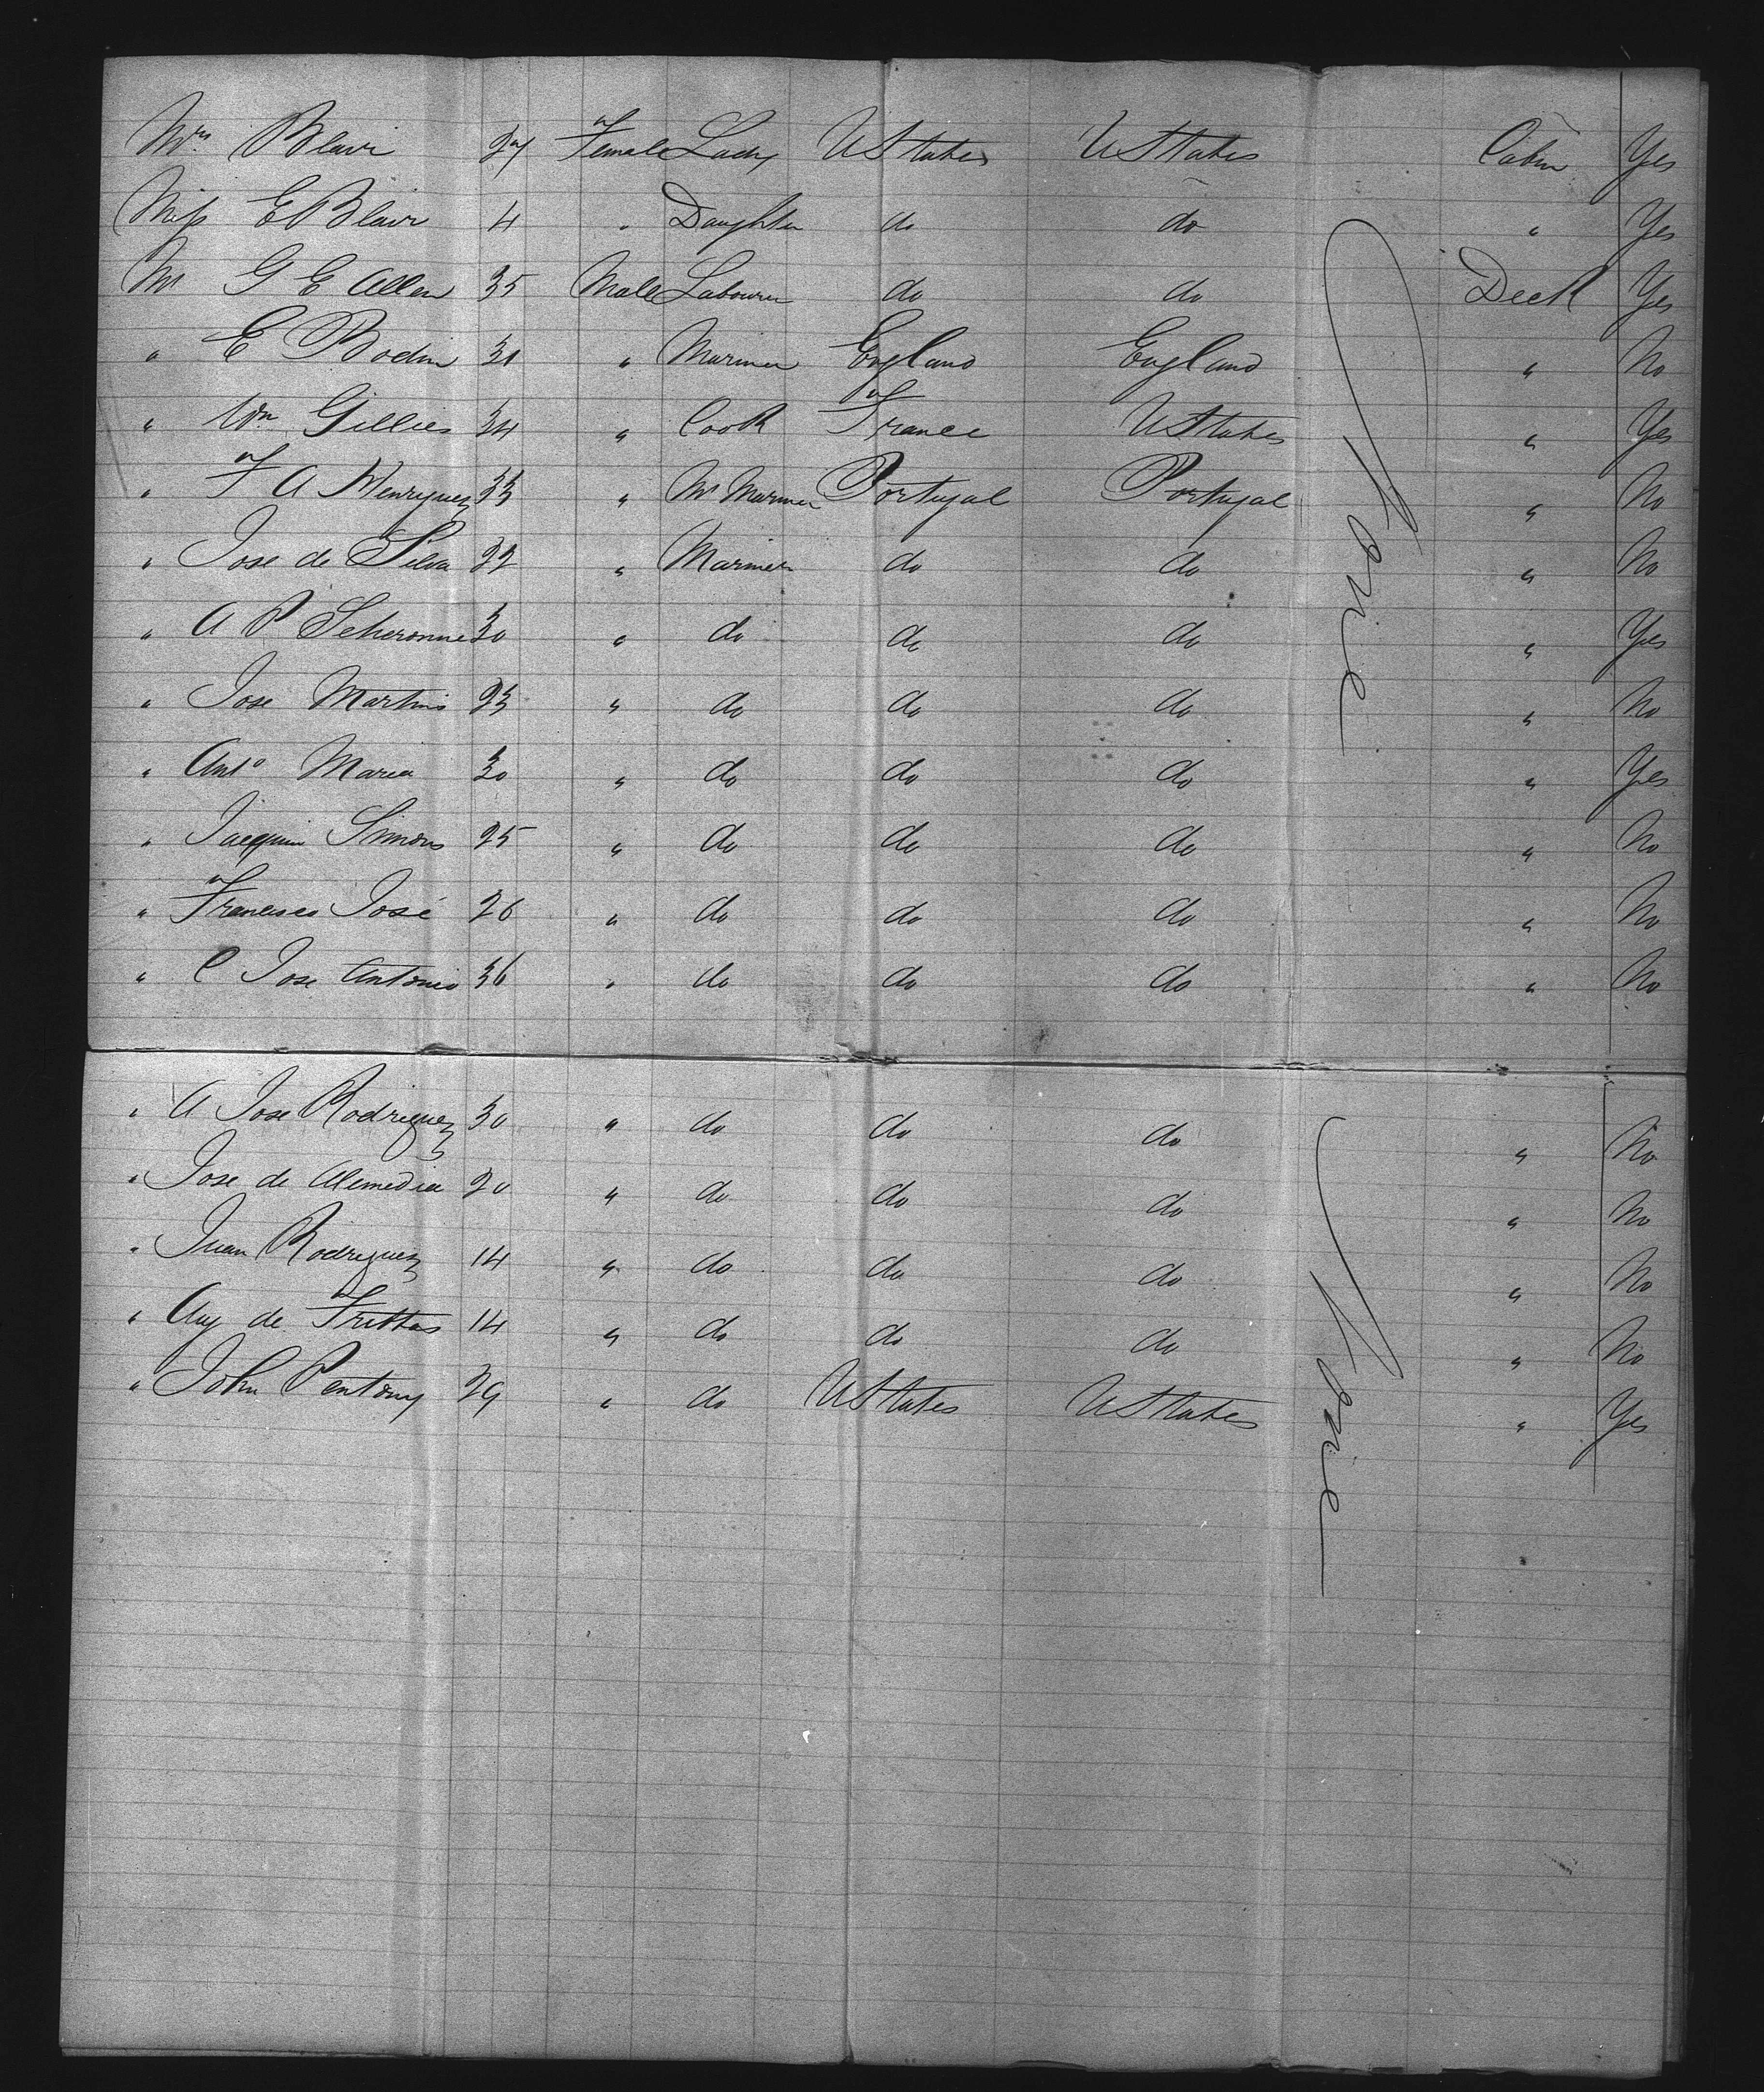 Mrs Blair 27 Female Lady U States U States Cabin Yes
Miss E Blair 4 " Daughter do do " Yes
Mr G E Allen 35 Male Labourer do do Deck Yes
" E Bodin 31 " Mariner England England " No
" Wm Gillies 34 " Cook France U States " Yes
" F A Henriquez 33 " Mr Mariner Portugal Portugal " No
" Jose de Silva 22 " Mariner do do " No
" A P Scheronne 30 " do do do " Yes
" Jose Martins 23 " do do do " No
" Anto Maria 30 " do do do " Yes
" Jacquin Simons 25 " do do do " No
" Francisco José 26 " do do do " No
" C Jose Antonio 36 " do do do " No
None
" A Jose Rodriguez 30 " do do do " No
" Jose de Alemedia 20 " do do do " No
" Juan Rodriguez 14 " do do do " No
" Aug de Frittas 14 " do do do " No
" John Pentony 29 " do U States U States " Yes
None